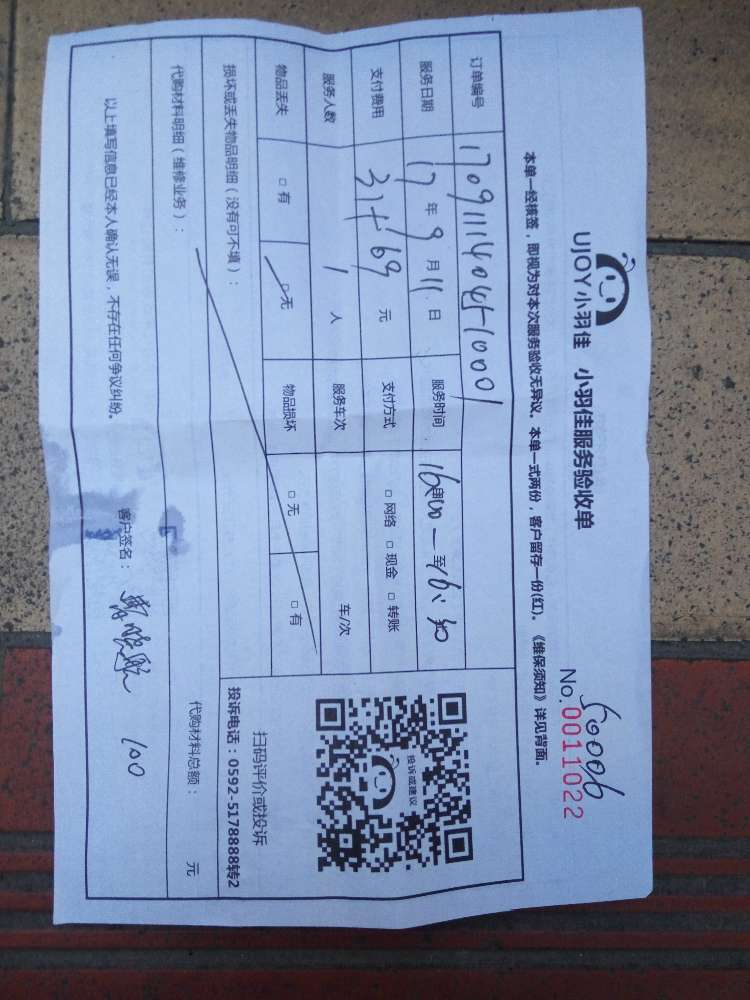 UJOY小羽佳 小羽佳服务验收单
50006
No.0011022
本单一经核签，即视为对本次服务验收无异议，本单一式两份，客户留存一份(红)。《维保须知》详见背面。
订单编号 1709111404510001
服务日期 17年9月11日 服务时间 16:00一至16:30
支付费用 37+69元 支付方式 □ 网络 □ 现金 □ 转账
服务人数 1人 服务车次 车/次
物品丢失 □ 有 □ 无 物品损坏 □ 无 □ 有
损坏或丢失物品明细（没有可不填）：
投诉或建议
扫码评价或投诉
投诉电话：0592-5178888转2
代购材料明细（维修业务）： 代购材料总额： 元
以上填写信息已经本人确认无误，不存在任何争议纠纷。
客户签名： 100